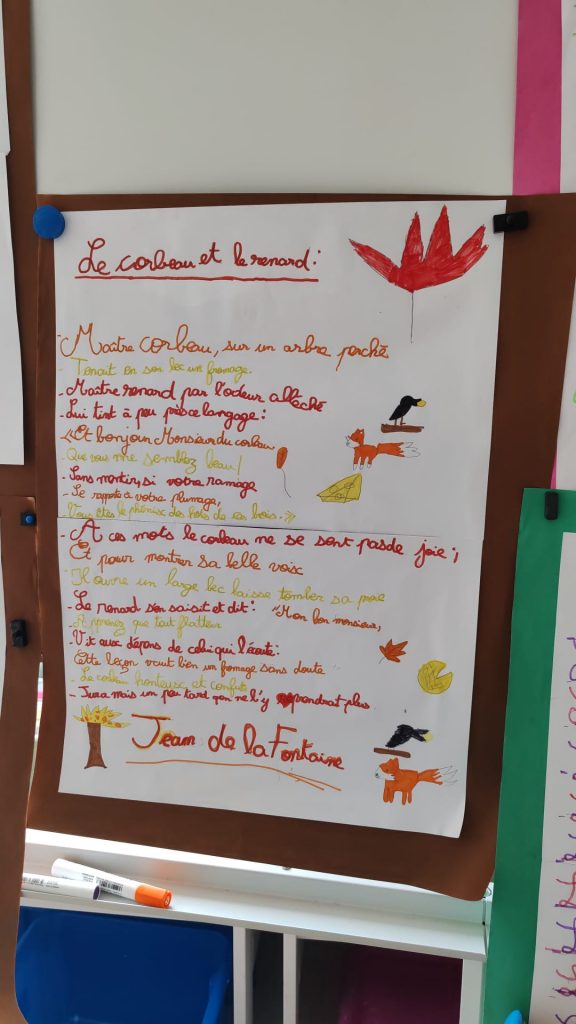 Le corbeau et le renard :
- Maître corbeau, sur un arbre perché
- Tenait en son bec un fromage.
- Maître renard par l'odeur alléché
- Lui tint à peu près ce langage :
- «Et bonjour Monsieur du corbeau
- Que vous me semblez beau !
- Sans mentir, si votre ramage
- Se rapporte à votre plumage,
- Vous êtes le phénix des hotes de ces bois. »
- A ces mots le corbeau ne se sont pas de joie ;
Et pour montrer sa belle voix
Il ouvre un large bec laisse tomber sa proie
- Le renard s'en saisit et dit : "Mon bon monsieur,
- Apprenez que tout flatteur
- Vit aux dépens de celui qui l'écoute :
Cette leçon vaut bien un fromage sans doute
- Le corbeau honteux et confus
- Jura mais un peu tard qu'on ne l'y prendrait plus
Jean de la Fontaine